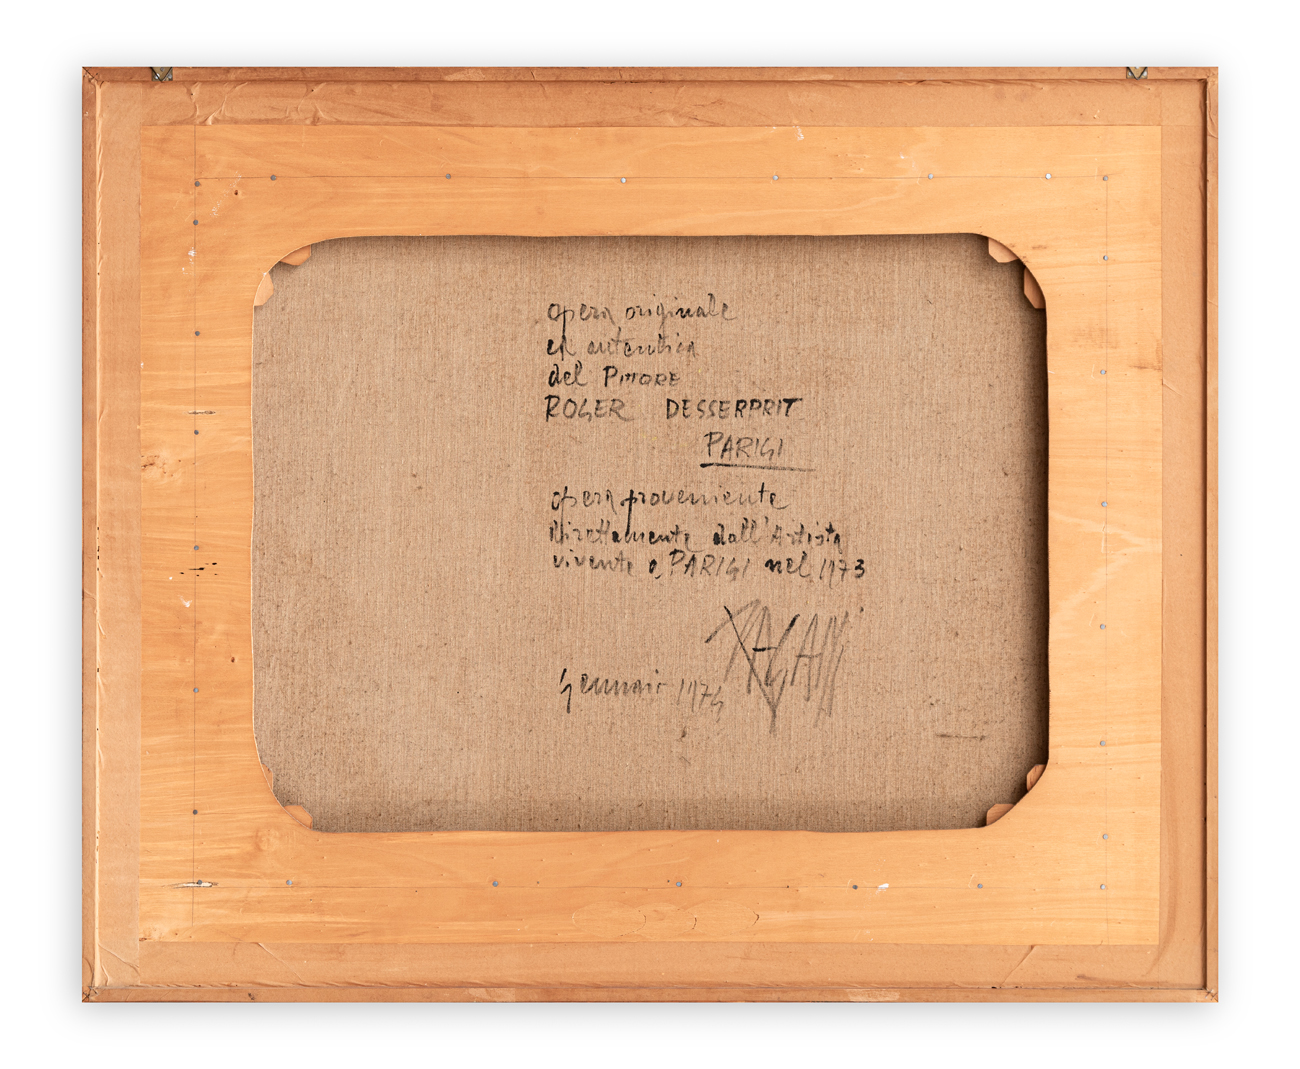 opera originale
ed autentica
del PITTORE
ROGER DESSERPRIT
PARIGI
opera proveniente
direttamente dall'Artista
vivente a PARIGI nel 1973
Gennaio 1974